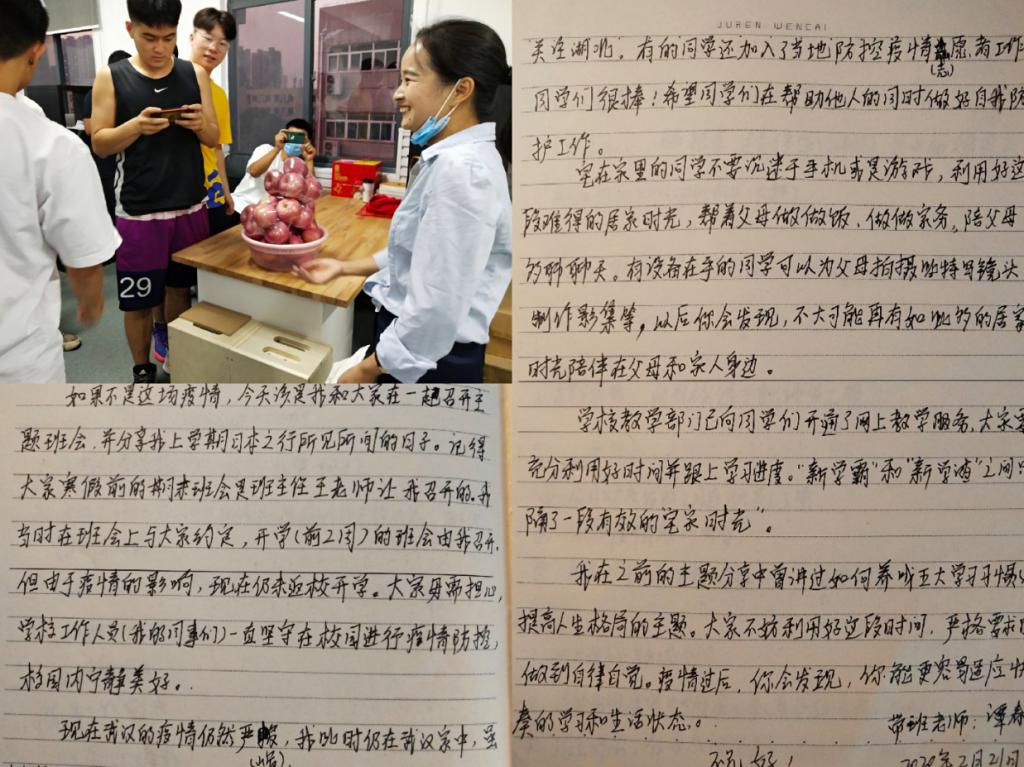 29
如果不是这场疫情，今天该是我和大家在一起召开主
题班会，并分享我上学期日本之行所见所闻的日子。记得
大家寒假前的期末班会是班主任王老师让我召开的。我
当时在班会上与大家约定，开学（前2周）的班会由我召开，
但由于疫情的影响，现在仍未返校开学。大家毋需担心，
学校工作人员（我的同事们）一直坚守在校园进行疫情防控，
校园内宁静美好。
现在武汉的疫情仍然严峻，我此时仍在武汉家中，虽
JUREN WENCAI
关注湖北"。有的同学还加入了当地防控疫情志愿者工作
同学们很棒！希望同学们在帮助他人的同时做好自我防
护工作。
宅在家里的同学不要沉迷于手机或是游戏，利用好这
段难得的居家时光，帮着父母做做饭、做做家务，陪父母
聊聊天。有设备在手的同学可以为父母拍摄些特写镜头
制作影集等，以后你会发现，不大可能再有如此多的居家
时光陪伴在父母和家人身边。
学校教学部门已向同学们开通了网上教学服务，大家要
充分利用好时间并跟上学习进度。"新学霸"和"新学渣"之间只
隔了一段有效的"宅家时光"。
我在之前的主题分享中曾讲过如何养成五大学习习惯
提高人生格局的主题。大家不妨利用好这段时间，严格要求
做到自律自觉。疫情过后，你会发现，你能更容易适应快
奏的学习和生活状态。
带班老师：谭
祝好！
2020年2月21日